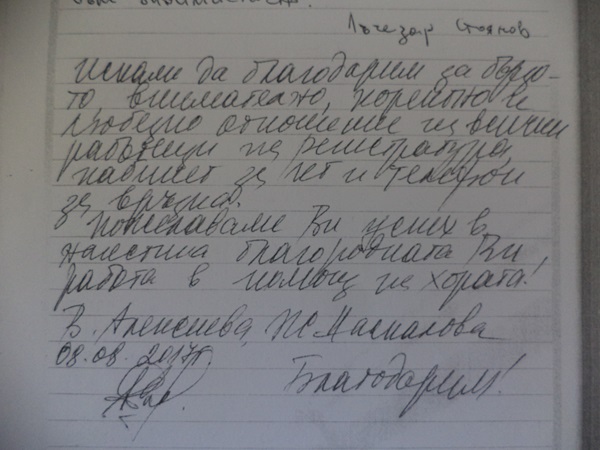 Лъчезар Стоянов
Искаме да благодарим за бързо-
то, внимателно, коректно и
любезно отношение на всички
работещи на регистратура,
кабинет за чет и телефон
за връзка.
Пожелаваме Ви успех в
наистина благородната Ви
работа в помощ на хората!
В. Алексиева,
08.08.2017г.
Благодарим!